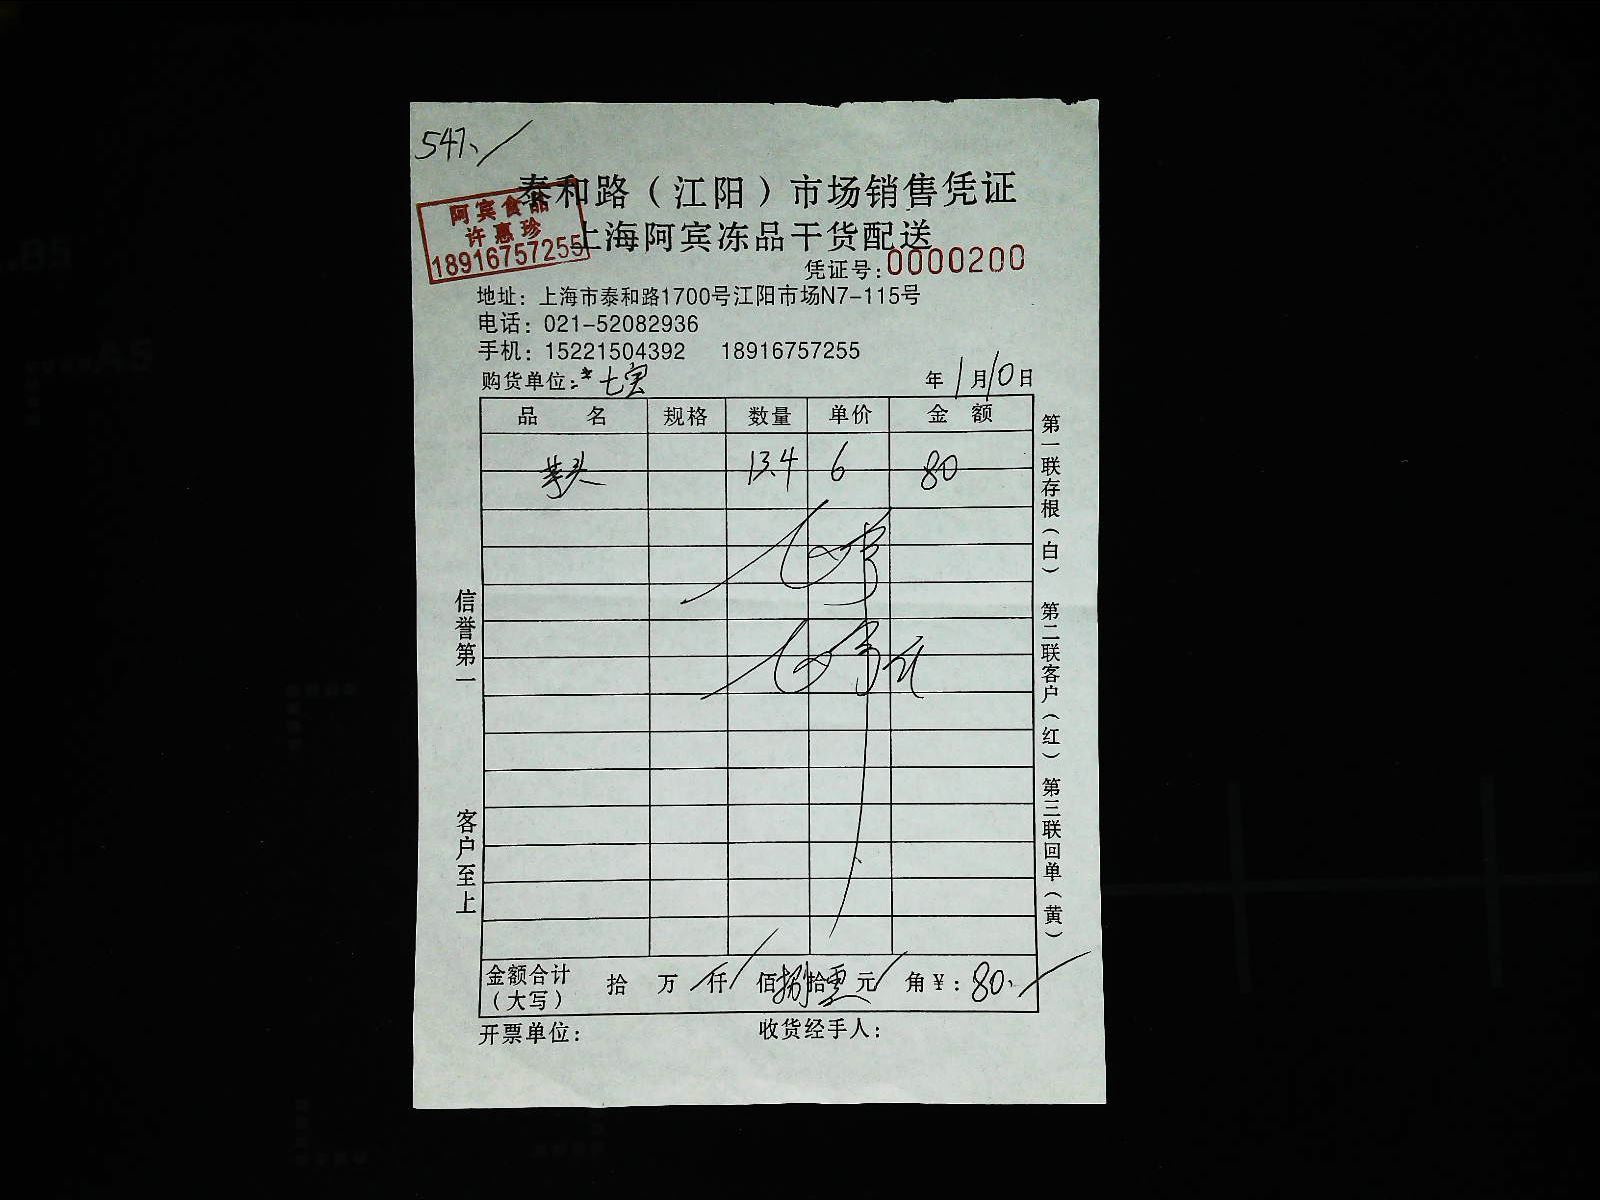 541、
泰和路（江阳）市场销售凭证
阿宾食品
许惠珍
18916757255
上海阿宾冻品干货配送
凭证号：0000200
地址：上海市泰和路1700号江阳市场N7-115号
电话：021-52082936
手机：15221504392 18916757255
购货单位：七宝 年 1 月 10 日
品 名 规格 数量 单价 金 额
芋头 13.4 6 80
信誉第一
客户至上
第一联存根（白） 第二联客户（红） 第三联回单（黄）
金额合计（大写） 拾 万 仟 佰 捌 拾 零 元 角 ¥：80、
开票单位： 收货经手人：